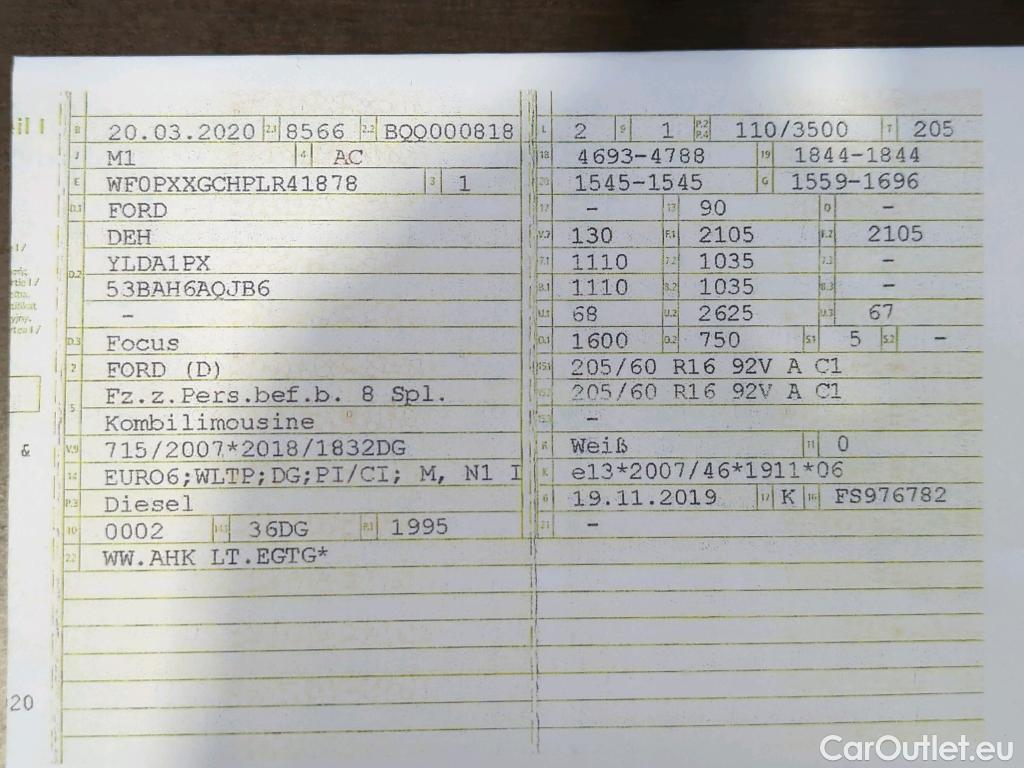 B 20.03.2020 2.1 8566 2.2 BQQ000818
J M1 4 AC
E WF0PXXGCHPLR41878 3 1
D.1 FORD
DEH
D.2 YLDA1PX
53BAH6AQJB6
–
D.3 Focus
2 FORD (D)
5 Fz.z.Pers.bef.b. 8 Spl.
Kombilimousine
V.9 715/2007*2018/1832DG
14 EURO6;WLTP;DG;PI/CI; M, N1 I
P.3 Diesel
10 0002 14.1 36DG P.1 1995
22 WW.AHK LT.EGTG*
L 2 9 1 P.2 P.4 110/3500 T 205
18 4693-4788 19 1844-1844
20 1545-1545 G 1559-1696
12 – 13 90 Q –
V.7 130 F.1 2105 F.2 2105
7.1 1110 7.2 1035 7.3 –
8.1 1110 8.2 1035 8.3 –
U.1 68 U.2 2625 U.3 67
O.1 1600 O.2 750 S.1 5 S.2 –
15.1 205/60 R16 92V A C1
15.2 205/60 R16 92V A C1
15.3 –
R Weiß 11 0
K e13*2007/46*1911*06
6 19.11.2019 17 K 16 FS976782
21 –
il I
&
020
CarOutlet.eu